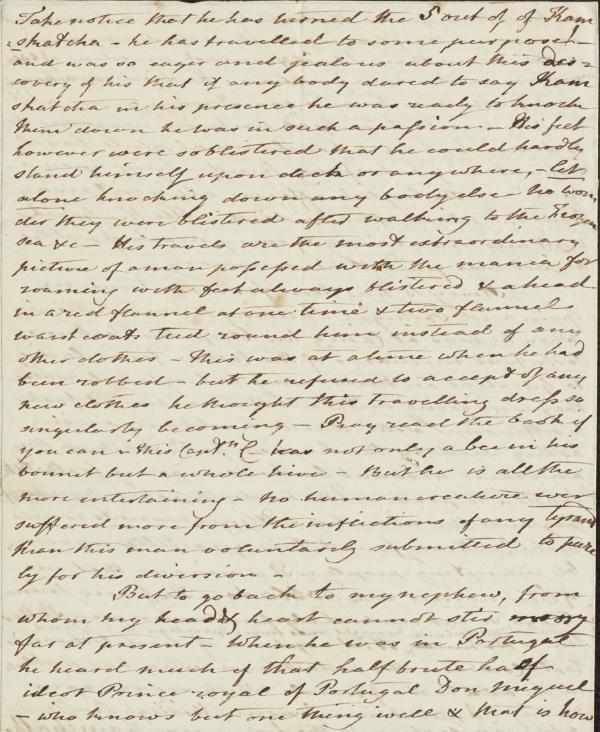 Take notice that he has turned the S out of of Kam
skatcha - he has travelled to some purpose! -
and was so eager and jealous about this dis=
covery of his that if any body dared to say Kam
skatcha in his presence he was ready to knock
them down he was in such a passion - His feet
however were so blistered that he could hardly
stand himself upon deck or anywhere, - let
alone knocking down any body else No won
der they were blistered after walking to the Frozen
sea &c - His travels are the most extraordinary
picture of a man possessed with the mania for
roaming with feet always blistered & a head
in a red flannel at one time & two flannel
waistcoats tied round him instead of any
other clothes - This was at a time when he had
been robbed - but he refused to accept of any
new clothes he thought this travelling dress so
singularly becoming - Pray read the book if
you can - This Captn. C has not only a bee in his
bonnet but a whole hive - But he is all the
more entertaining - no human creature ever
suffered more from the inflictions of any tyrant
than this man voluntarily submitted to pure
ly for his diversion -
But to go back to my nephew, from
whom my head & heart cannot stir very
far at present - When he was in Portugal
he heard much of that half brute half
ideot Prince royal of Portugal Don Miguel
- who knows but one thing well & that is how